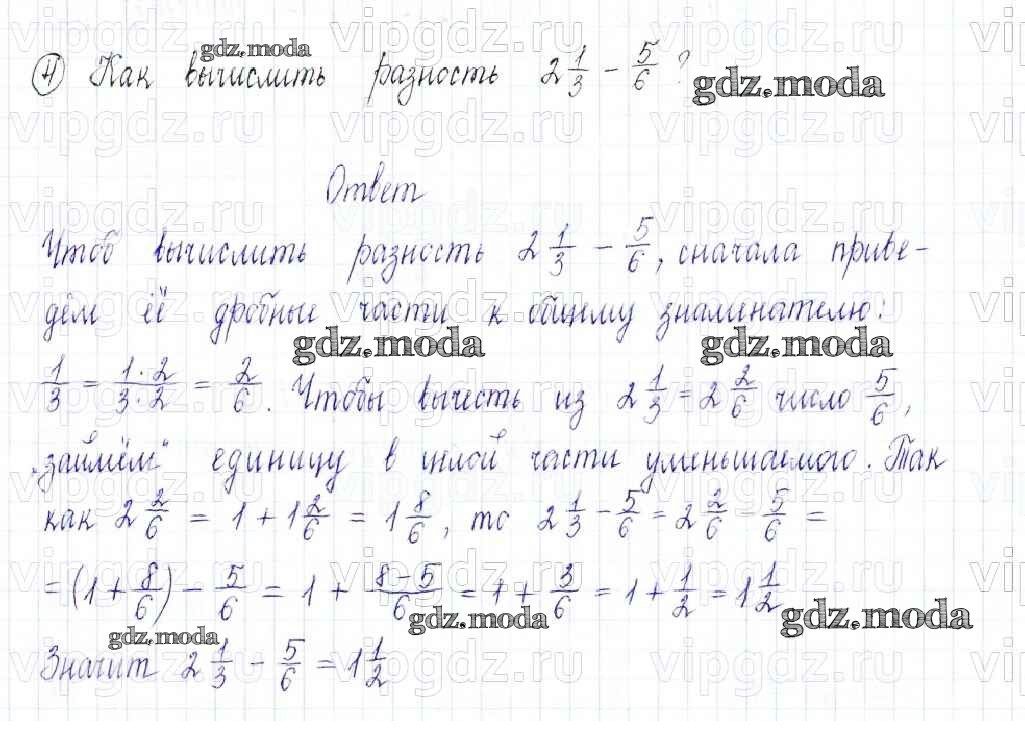 ④ Как вычислить разность 2 1/3 − 5/6?
Ответ
Чтоб вычислить разность 2 1/3 − 5/6, сначала приве-
дём её дробные части к общему знаменателю:
1/3 = 1·2/3·2 = 2/6. Чтобы вычесть из 2 1/3 = 2 2/6 число 5/6,
„займём" единицу в целой части уменьшаемого. Так
как 2 2/6 = 1 + 1 2/6 = 1 8/6, то 2 1/3 − 5/6 = 2 2/6 − 5/6 =
= (1 + 8/6) − 5/6 = 1 + 8−5/6 = 1 + 3/6 = 1 + 1/2 = 1 1/2
Значит 2 1/3 − 5/6 = 1 1/2
gdz.moda
vipgdz.ru